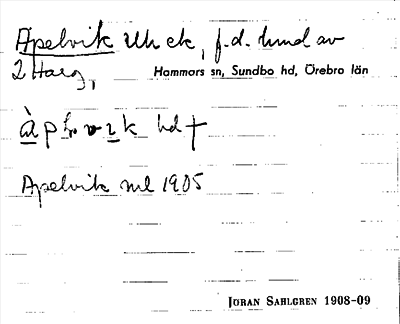 Apelvik Uh ek, f.d. lund av
2 Harg,
Hammars sn, Sundbo hd, Örebro län
hd †
Apelvik ml 1905
JÖRAN SAHLGREN 1908-09